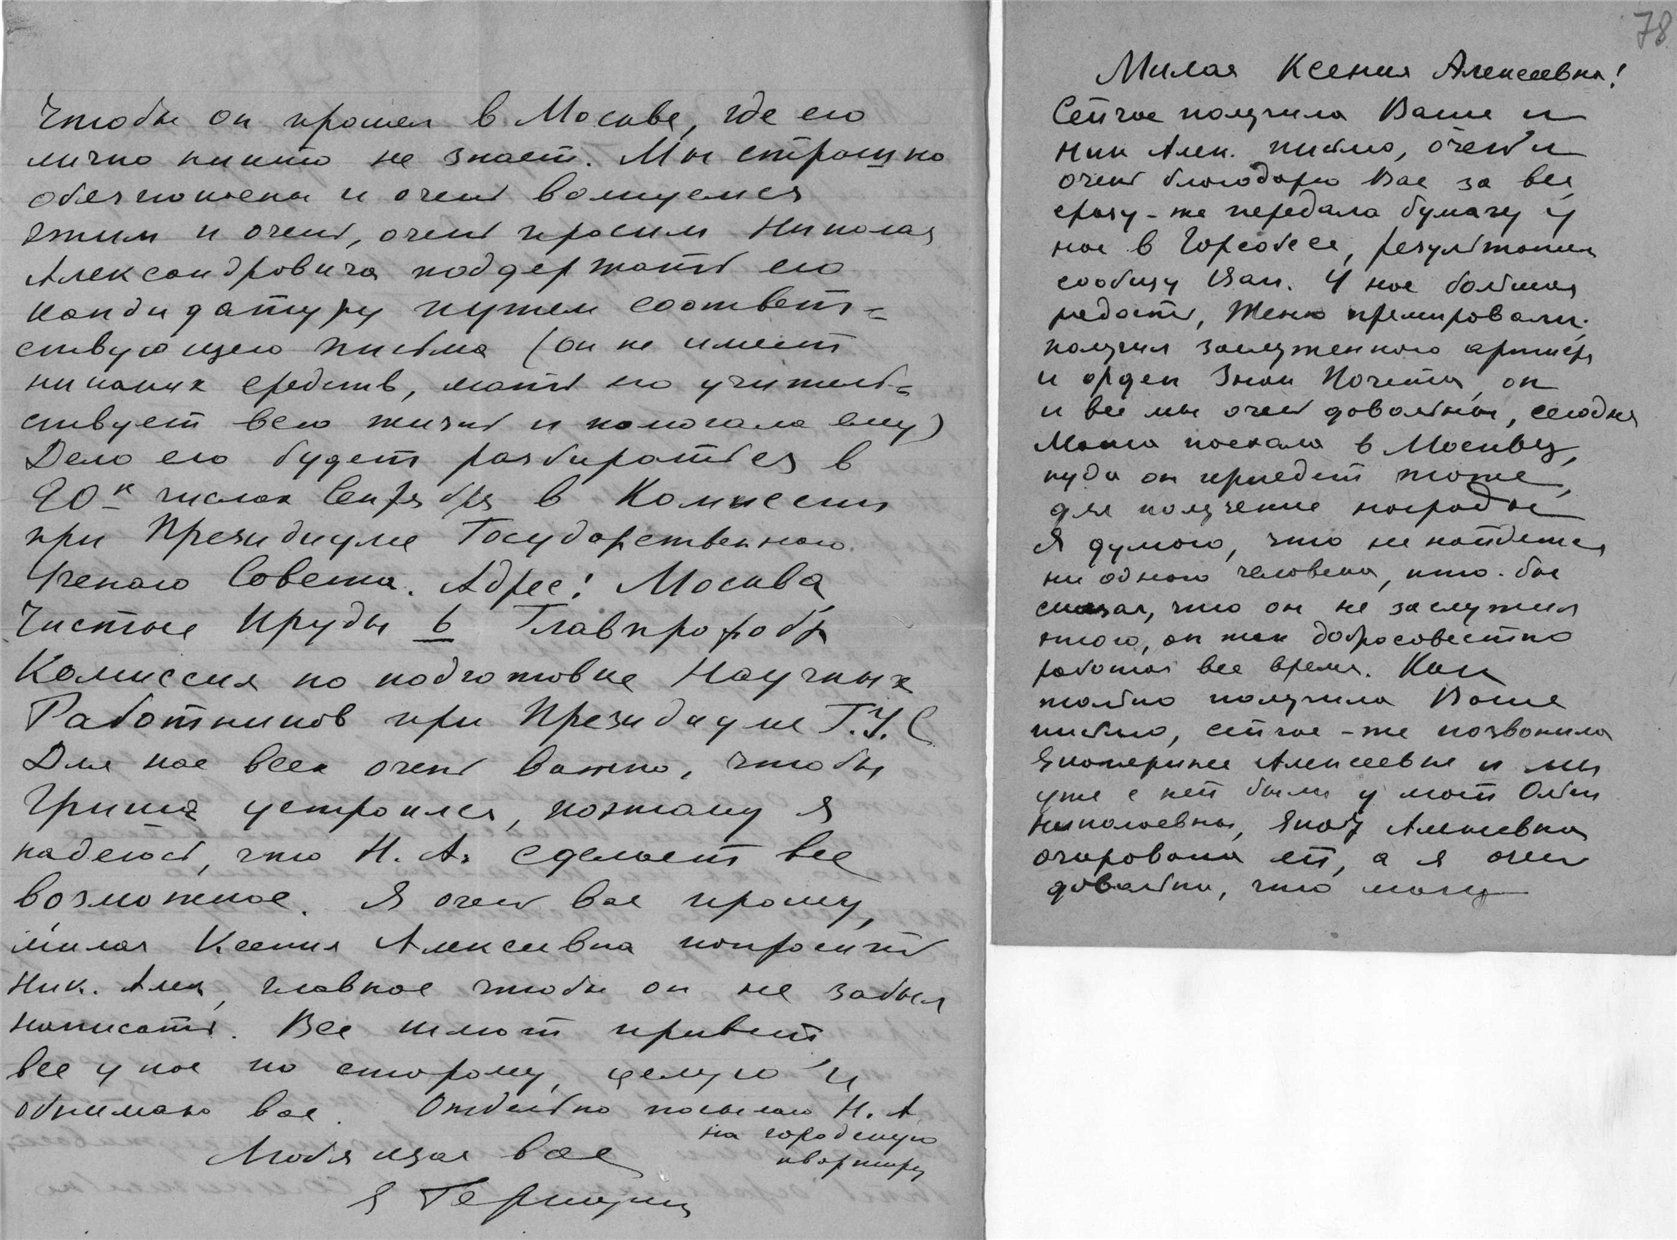 Чтобы он прошел в Москве, где его
лично никто не знает. Мы страшно
обезпокоены и очень волнуемся
этим и очень, очень просим Николая
Александровича поддержать его
кандидатуру путем соответ=
ствующего письма (он не имеет
никаких средств, мать его учитель=
ствует всю жизнь и помогала ему)
Дело его будет разбираться в
20х числах Сентября в Комиссии
при Президиуме Государственного
Ученого Совета. Адрес: Москва,
Чистые Пруды 6 Главпрофобр
Комиссия по подготовке Научных
Работников при Президиуме Г.У.С
Для нас всех очень важно, чтобы
Гриша устроился, поэтому я
надеюсь, что Н. А. сделает все
возможное. Я очень вас прошу,
милая Ксения Алексеевна попросить
Ник. Алек, главное чтобы он не забыл
написать. Все шлют привет,
все у нас по старому, целую и
обнимаю вас. Отдельно посылаю Н. А
на городскую
квартиру
Любящая вас
78
Милая Ксения Алексеевна!
Сейчас получила Ваше и
Ник Алек. письмо, очень и
очень благодарю Вас за все,
сразу-же передала бумагу у
нас в Горсобесе, результаты
сообщу Вам. У нас большая
радость, Женю премировали,
получил заслуженного артиста
и орден Знак Почета, он
и все мы очень довольны, сегодня
поехала в Москву,
куда он приедет тоже,
для получение награды
Я думаю, что не найдется
ни одного человека, кто-бы
сказал, что он не заслужил
этого, он так добросовестно
работал все время. Как
только получила Ваше
письмо, сейчас-же позвонила
Екатерине Алексеевне и мы
уже с ней были у Ольги
Николаевны, Алексеевна
очарована ей, а я очень
довольна, что могу